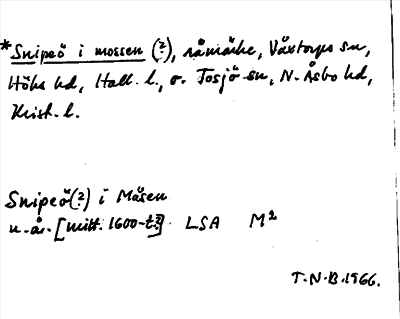 *Snipeö i mossen (?), råmärke, Växtorps sn,
Höks hd, Hall. l., o. Tosjö sn, N. Åsbo hd,
Krist. l.
Snipeö(?) i Måsen
u. år. [mitt. 1600-t?] LSA M²
T.N.B. 1966.